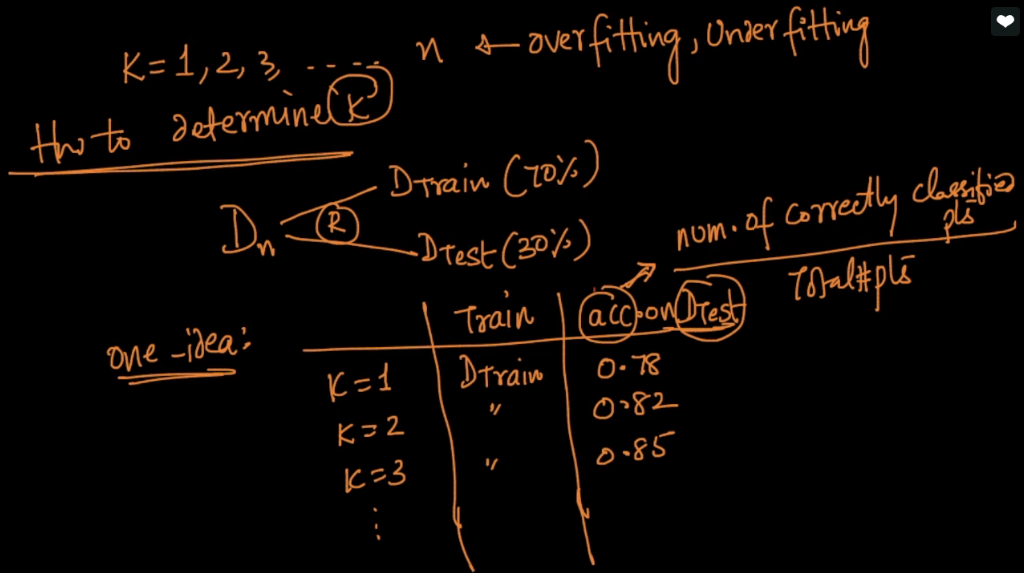 K = 1, 2, 3, ..... n ← overfitting, Underfitting
How to determine K
Dn
R
DTrain (70%)
DTest (30%)
num. of correctly classified pts
Total # pts
one-idea:
Train | acc on DTest
K = 1 | DTrain | 0.78
K = 2 | " | 0.82
K = 3 | " | 0.85
⋮